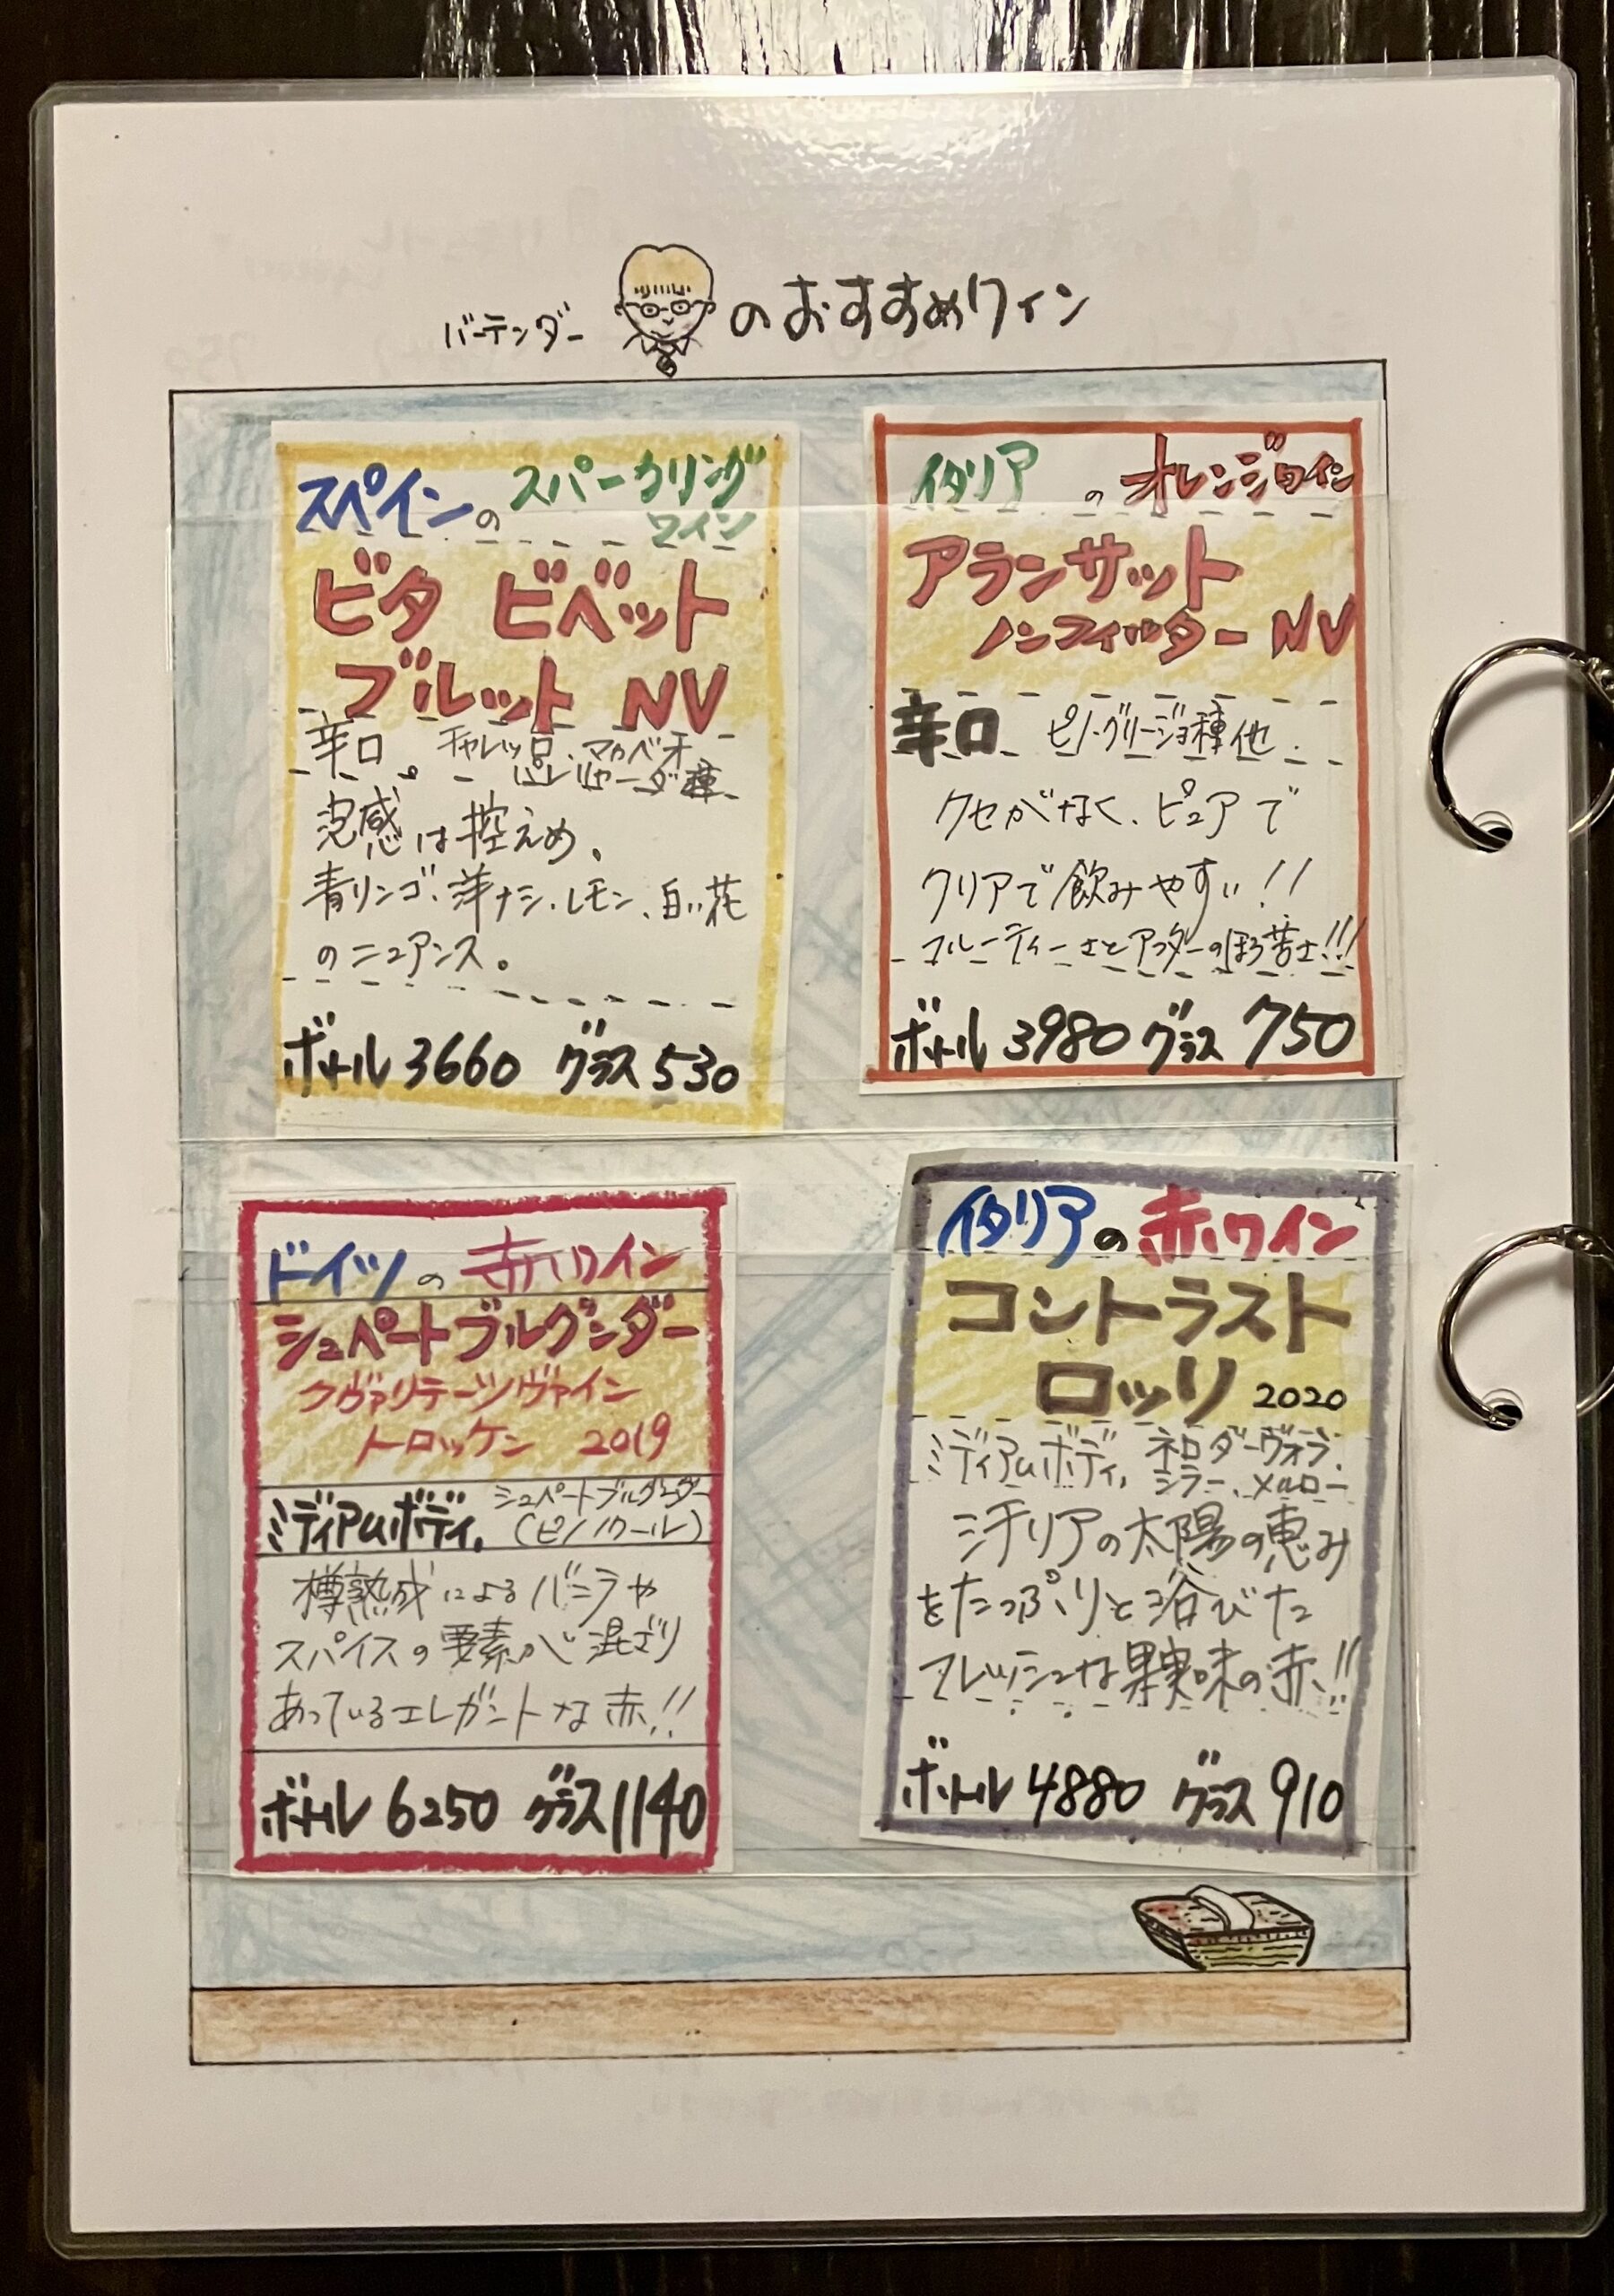 バーテンダー のおすすめワイン
スペインの スパークリング
ワイン
ビタ ビベット
ブルット NV
辛口。 チャレッロ、マカベオ、
パレリャーダ種
泡感は控えめ、
青リンゴ、洋ナシ、レモン、白い花
のニュアンス。
ボトル 3660 グラス 530
イタリア の オレンジワイン
アランサット
ノンフィルター NV
辛口 ピノ・グリージョ種他.
クセがなく、ピュアで
クリアで飲みやすい!!
フルーティーさとアフターのほろ苦さ!!!
ボトル 3980 グラス 750
ドイツ の 赤ワイン
シュペートブルグンダー
クヴァリテーツヴァイン
トロッケン 2019
ミディアムボディ, シュペートブルグンダー
(ピノノワール)
樽熟成によるバニラや
スパイスの要素が混ざり
あっているエレガントな赤!!
ボトル 6250 グラス 1140
イタリアの赤ワイン
コントラスト
ロッソ 2020
ミディアムボディ, ネロダーヴォラ、
シラー、メルロー
シチリアの太陽の恵み
をたっぷりと浴びた
フレッシュな果実味の赤!!
ボトル 4880 グラス 910